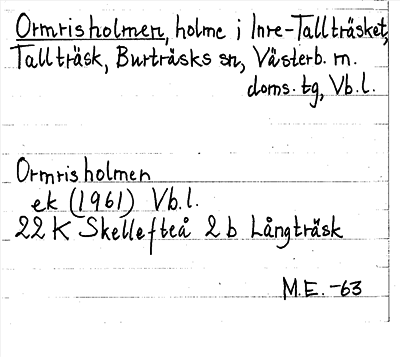 Ormrisholmen, holme i Inre-Tallträsket,
Tallträsk, Burträsks sn, Västerb. m.
doms. tg, Vb.l.
Ormrisholmen
ek (1961) Vb.l.
22 K Skellefteå 2 b Långträsk
M.E. -63